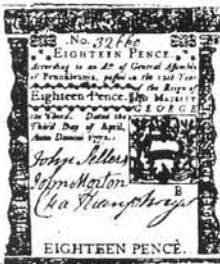 No. 32660
EIGHTEEN PENCE.
According to an Act of General Assembly
of Pennsylvania, passed in the 12th Year
of the Reign of
Eighteen-Pence. His MAJESTY
GEORGE
the Third. Dated the
Third Day of April,
Anno Domini 1772.
John Sellers
John Morton
B
EIGHTEEN PENCE.